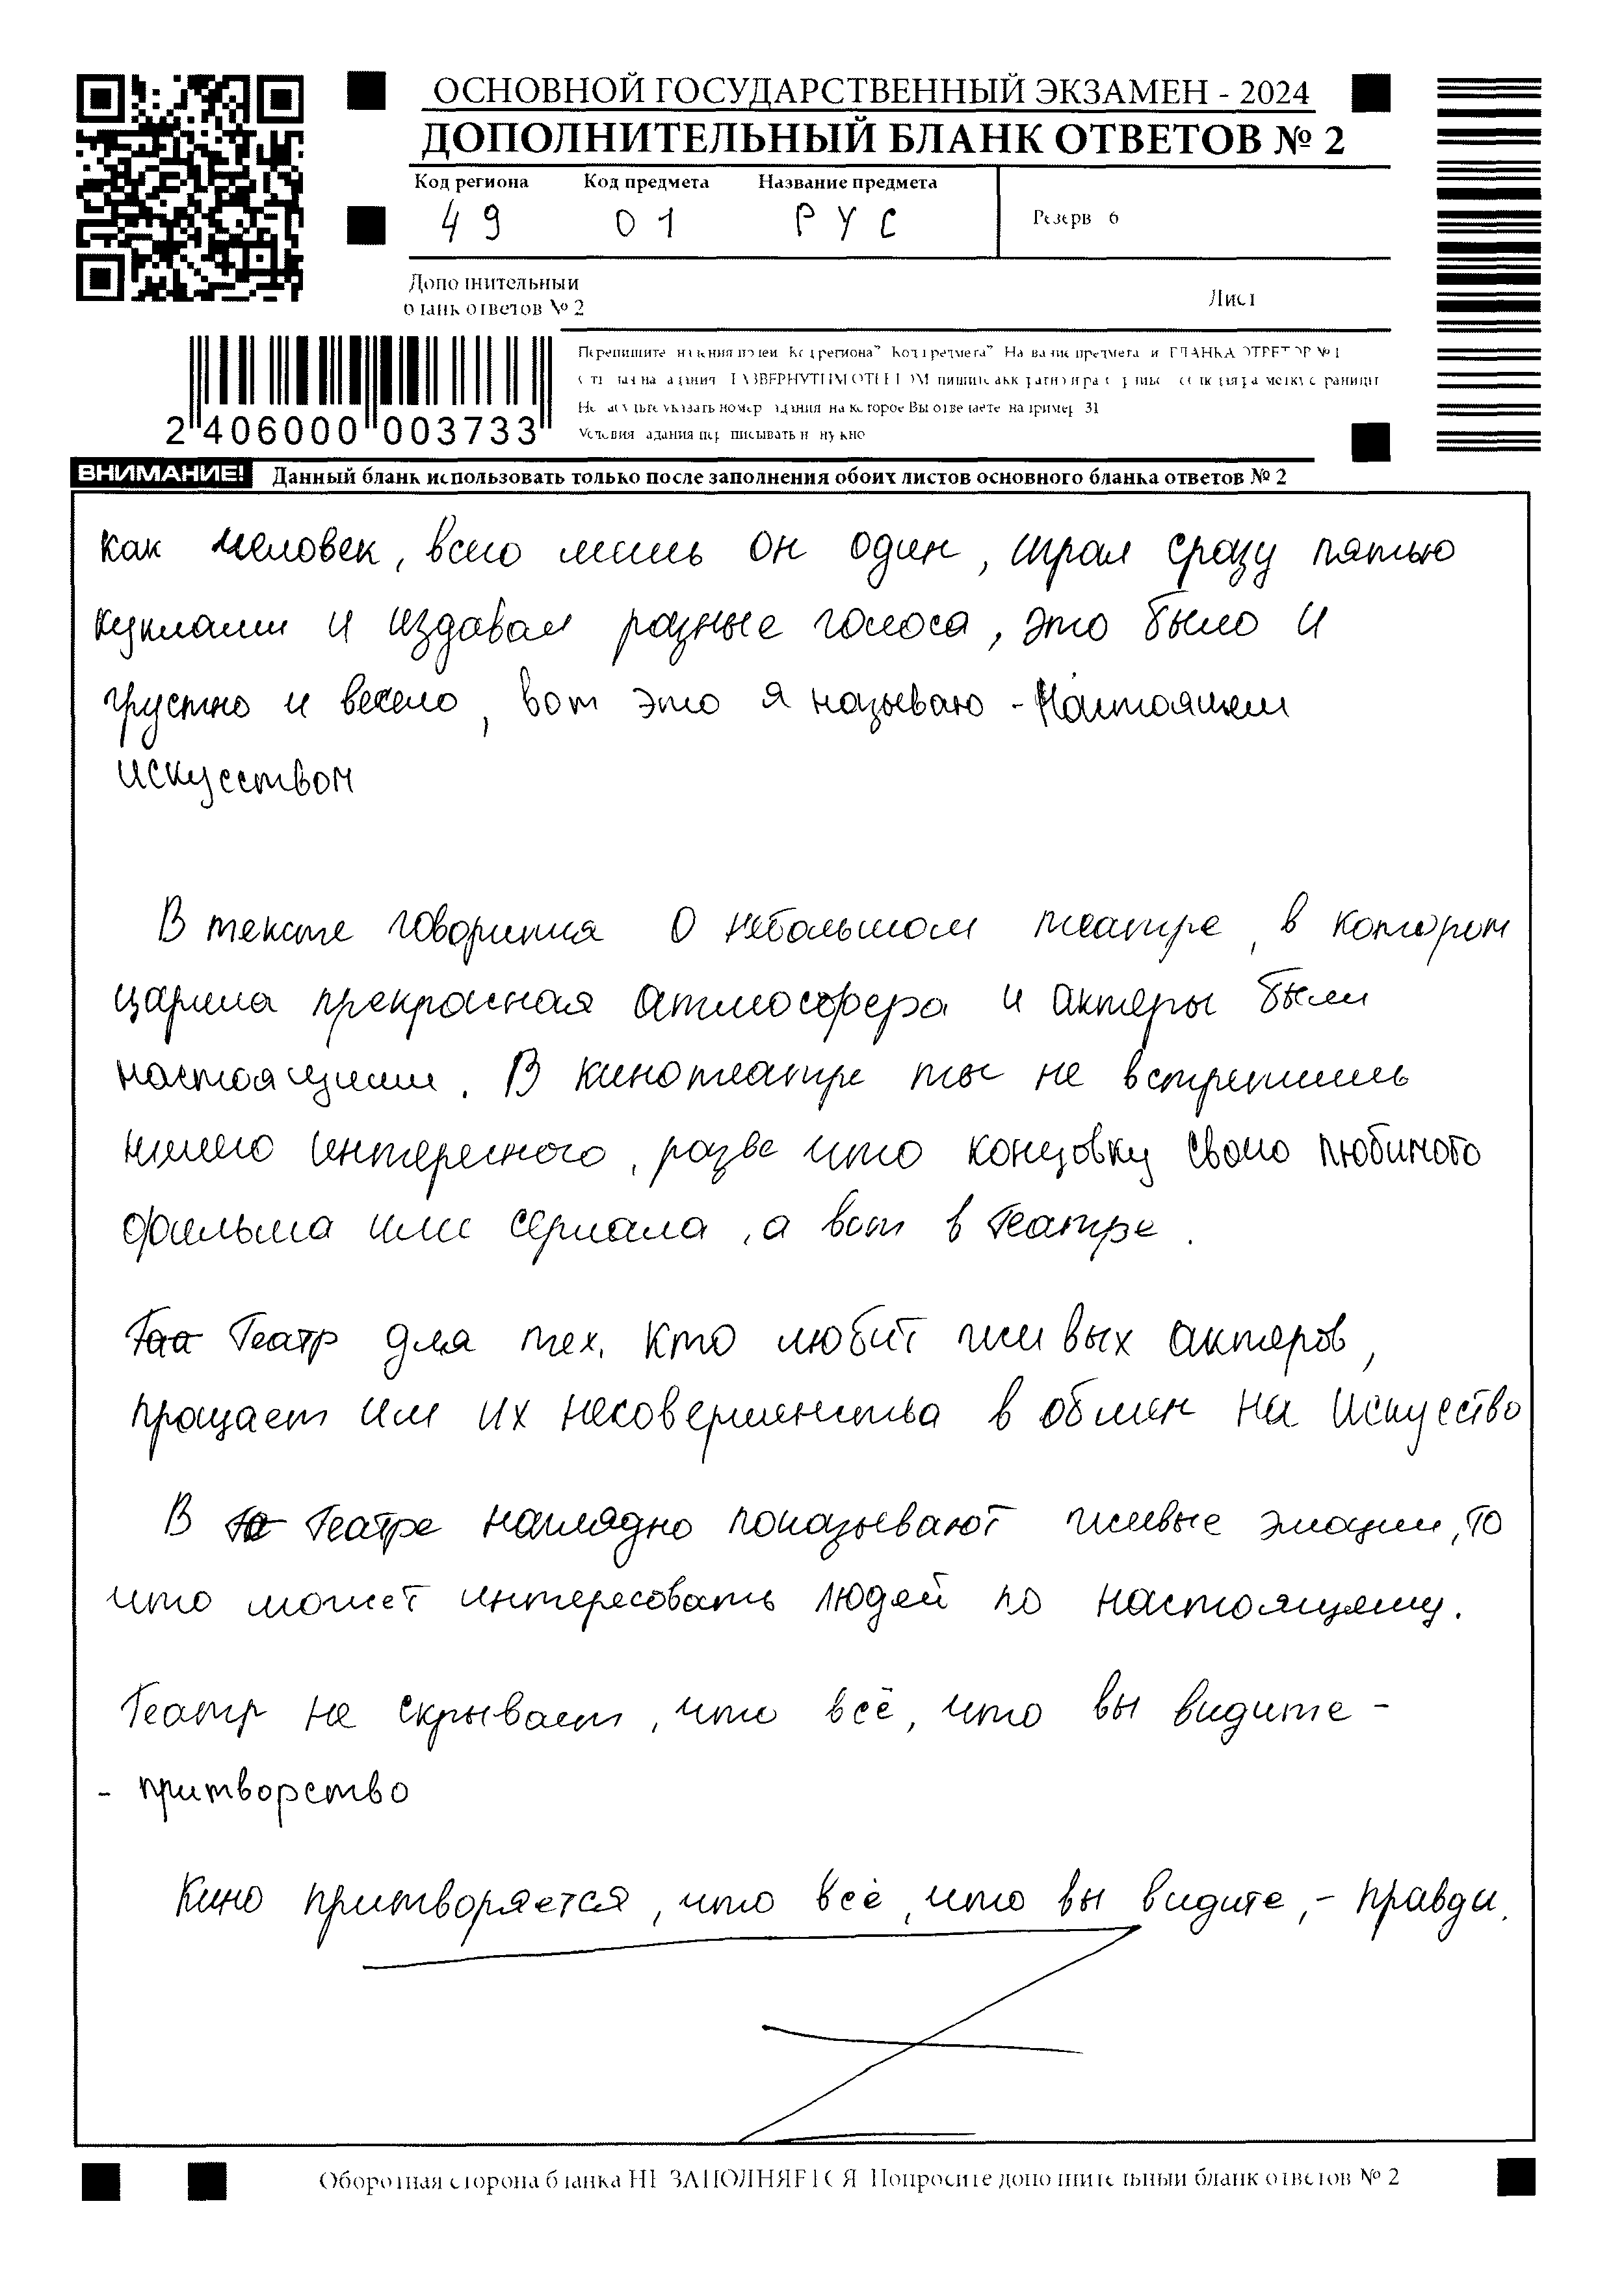 ОСНОВНОЙ ГОСУДАРСТВЕННЫЙ ЭКЗАМЕН - 2024
ДОПОЛНИТЕЛЬНЫЙ БЛАНК ОТВЕТОВ № 2
Код региона Код предмета Название предмета
49 01 РУС
Резерв 6
Дополнительный
бланк ответов № 2
Лист
2 406000 003733
ВНИМАНИЕ! Данный бланк использовать только после заполнения обоих листов основного бланка ответов № 2
как человек, всего лишь он один, играя сразу пятью
куклами и издавая разные голоса, это было и
грустно и весело, вот это я называю - Настоящем
искусством
В тексте говориться о небольшом театре, в котором
царила прекрасная атмосфера и актеры были
настоящими. В кинотеатре ты не встретишь
ничего интересного, разве что концовку свого любимого
фильма или сериала, а вот в театре.
Театр для тех, кто любит живых актеров,
прощает им их несовершенства в обмен на искуество
В Театре наглядно показывают живые эмоции, то
что может интересовать людей по настоящему.
Театр не скрывает, что всё, что вы видите -
- притворство
Кино притворяется, что всё, что вы видите, - правда.
Оборотная сторона бланка НЕ ЗАПОЛНЯЕТСЯ Попросите дополнительный бланк ответов № 2